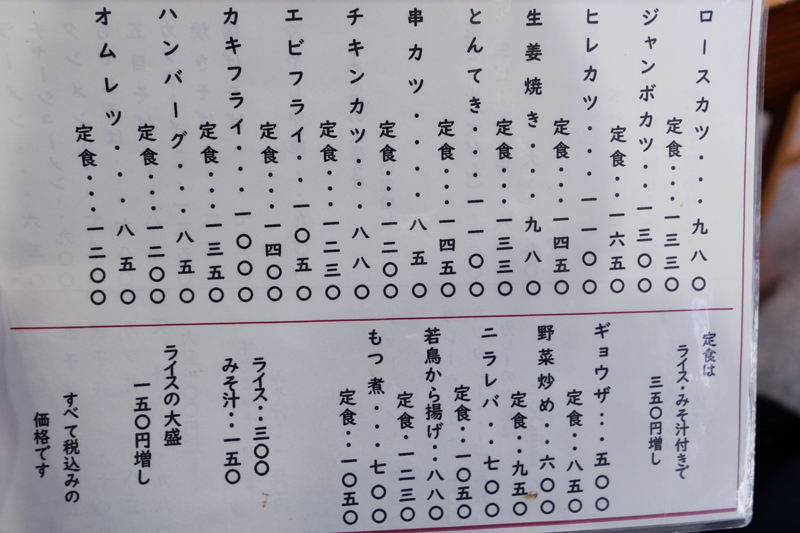 ロースカツ・・・九八〇
定食・・・一三三〇
ジャンボカツ・・・一三〇〇
定食・・・一六五〇
ヒレカツ・・・一一〇〇
定食・・・一四五〇
生姜焼き・・・九八〇
定食・・・一三三〇
とんてき・・・一一〇〇
定食・・・一四五〇
串カツ・・・・八五〇
定食・・・一二〇〇
チキンカツ・・・八八〇
定食・・・一二三〇
エビフライ・・・一〇五〇
定食・・・一四〇〇
カキフライ・・・一〇〇〇
定食・・・一三五〇
ハンバーグ・・・八五〇
定食・・・一二〇〇
オムレツ・・・・八五〇
定食・・・・一二〇〇
定食は
ライス・みそ汁付きで
三五〇円増し
ギョウザ・・・五〇〇
定食・・八五〇
野菜炒め・・六〇〇
定食・・九五〇
ニラレバ・・七〇〇
定食・・一〇五〇
若鳥から揚げ・・八八〇
定食・・一二三〇
もつ煮・・・七〇〇
定食・・一〇五〇
ライス・・三〇〇
みそ汁・・一五〇
ライスの大盛
一五〇円増し
すべて税込みの
価格です